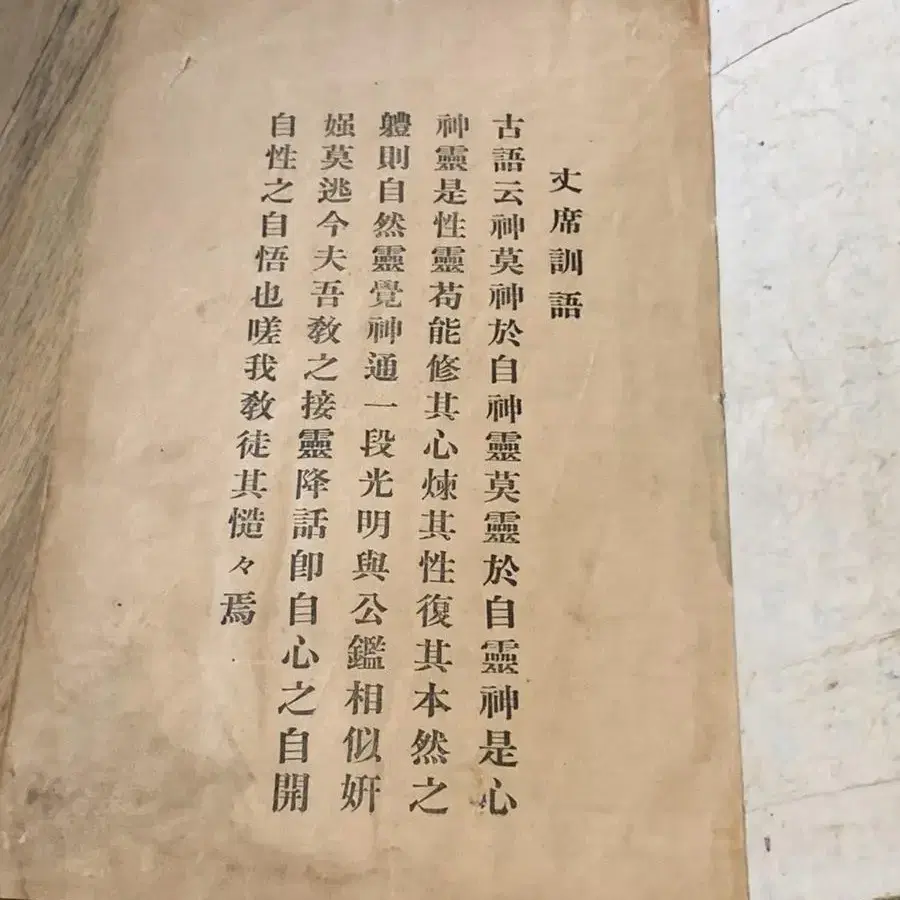 丈席訓語
古語云神莫神於自神靈莫靈於自靈神是心
神靈是性靈苟能修其心煉其性復其本然之
軆則自然靈覺神通一段光明與公鑑相似姸
媸莫逃今夫吾敎之接靈降話卽自心之自開
自性之自悟也嗟我敎徒其慥々焉